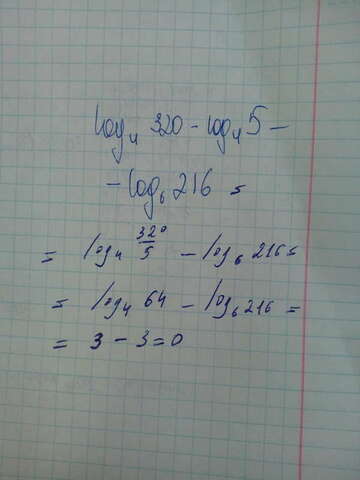 log₄ 320 - log₄ 5 -
- log₆ 216 =
= log₄ 320/5 - log₆ 216 =
= log₄ 64 - log₆ 216 =
= 3 - 3 = 0